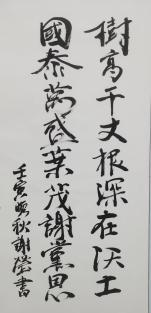 樹高千丈根深在沃土
國泰萬盛葉茂謝黨恩
壬寅晚秋謝瑩書